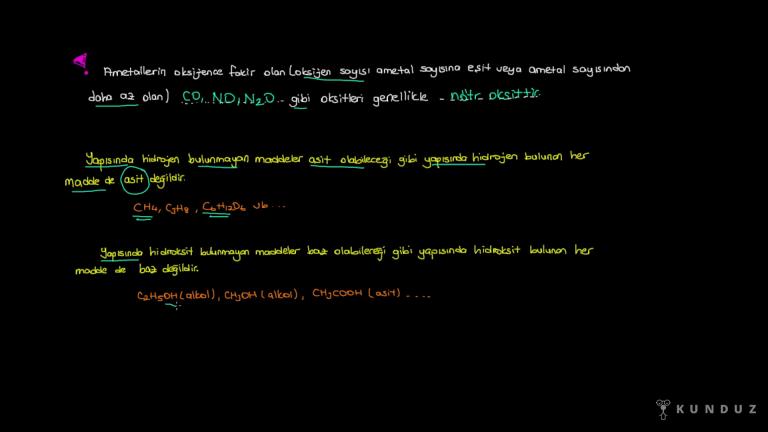 Ametallerin oksijence fakir olan (oksijen sayısı ametal sayısına eşit veya ametal sayısından
daha az olan) CO, NO, N2O.. gibi oksitleri genellikle - nötr oksittir.
Yapısında hidrojen bulunmayan maddeler asit olabileceği gibi yapısında hidrojen bulunan her
madde de asit değildir.
CH4, C3H8, C6H12O6 vb ...
Yapısında hidroksit bulunmayan maddeler baz olabileceği gibi yapısında hidroksit bulunan her
madde de baz değildir.
C2H5OH (alkol), CH3OH (alkol), CH3COOH (asit) ....
KUNDUZ